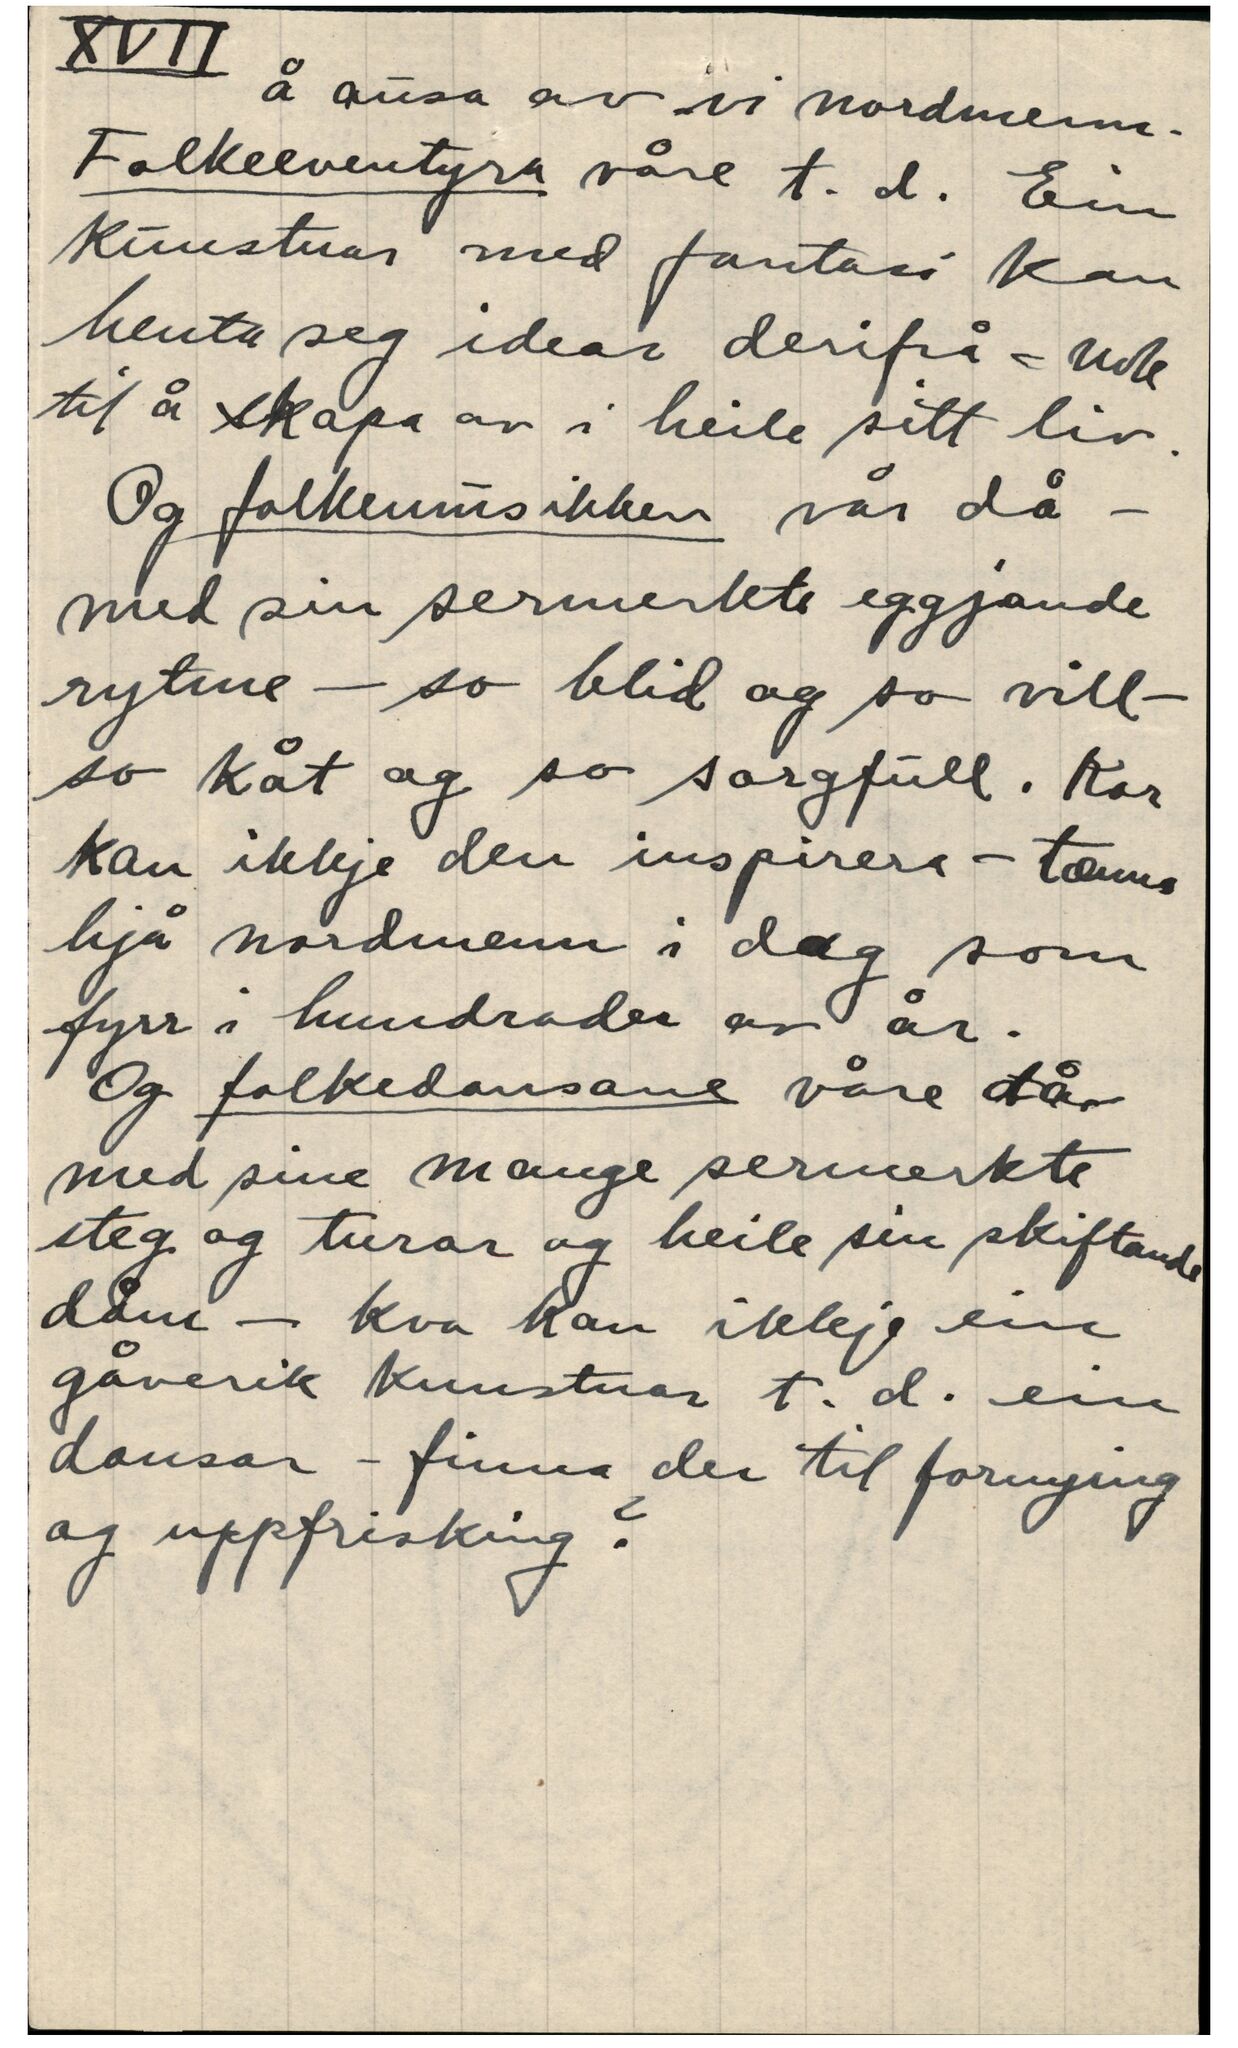 XVII
å ausa av vi nordmenn.
Folkeeventyra våre t. d. Ein
kunstnar med fantasi kan
henta seg idear derifrå - nok
til å skapa av i heile sitt liv.
Og folkemusikken vår då -
med sin sermerkte eggjande
rytme - so blid og so vill -
so kåt og so sorgfull. Kor
kan ikkje den inspirera - tænna
hjå nordmenn i dag som
fyrr i hundrader av år.
Og folkedansane våre då
med sine mange sermerkte
steg og turar og heile sin skiftande
dåm - kva kan ikkje ein
gåverik kunstnar t. d. ein
dansar - finna der til fornying
og uppfrisking?